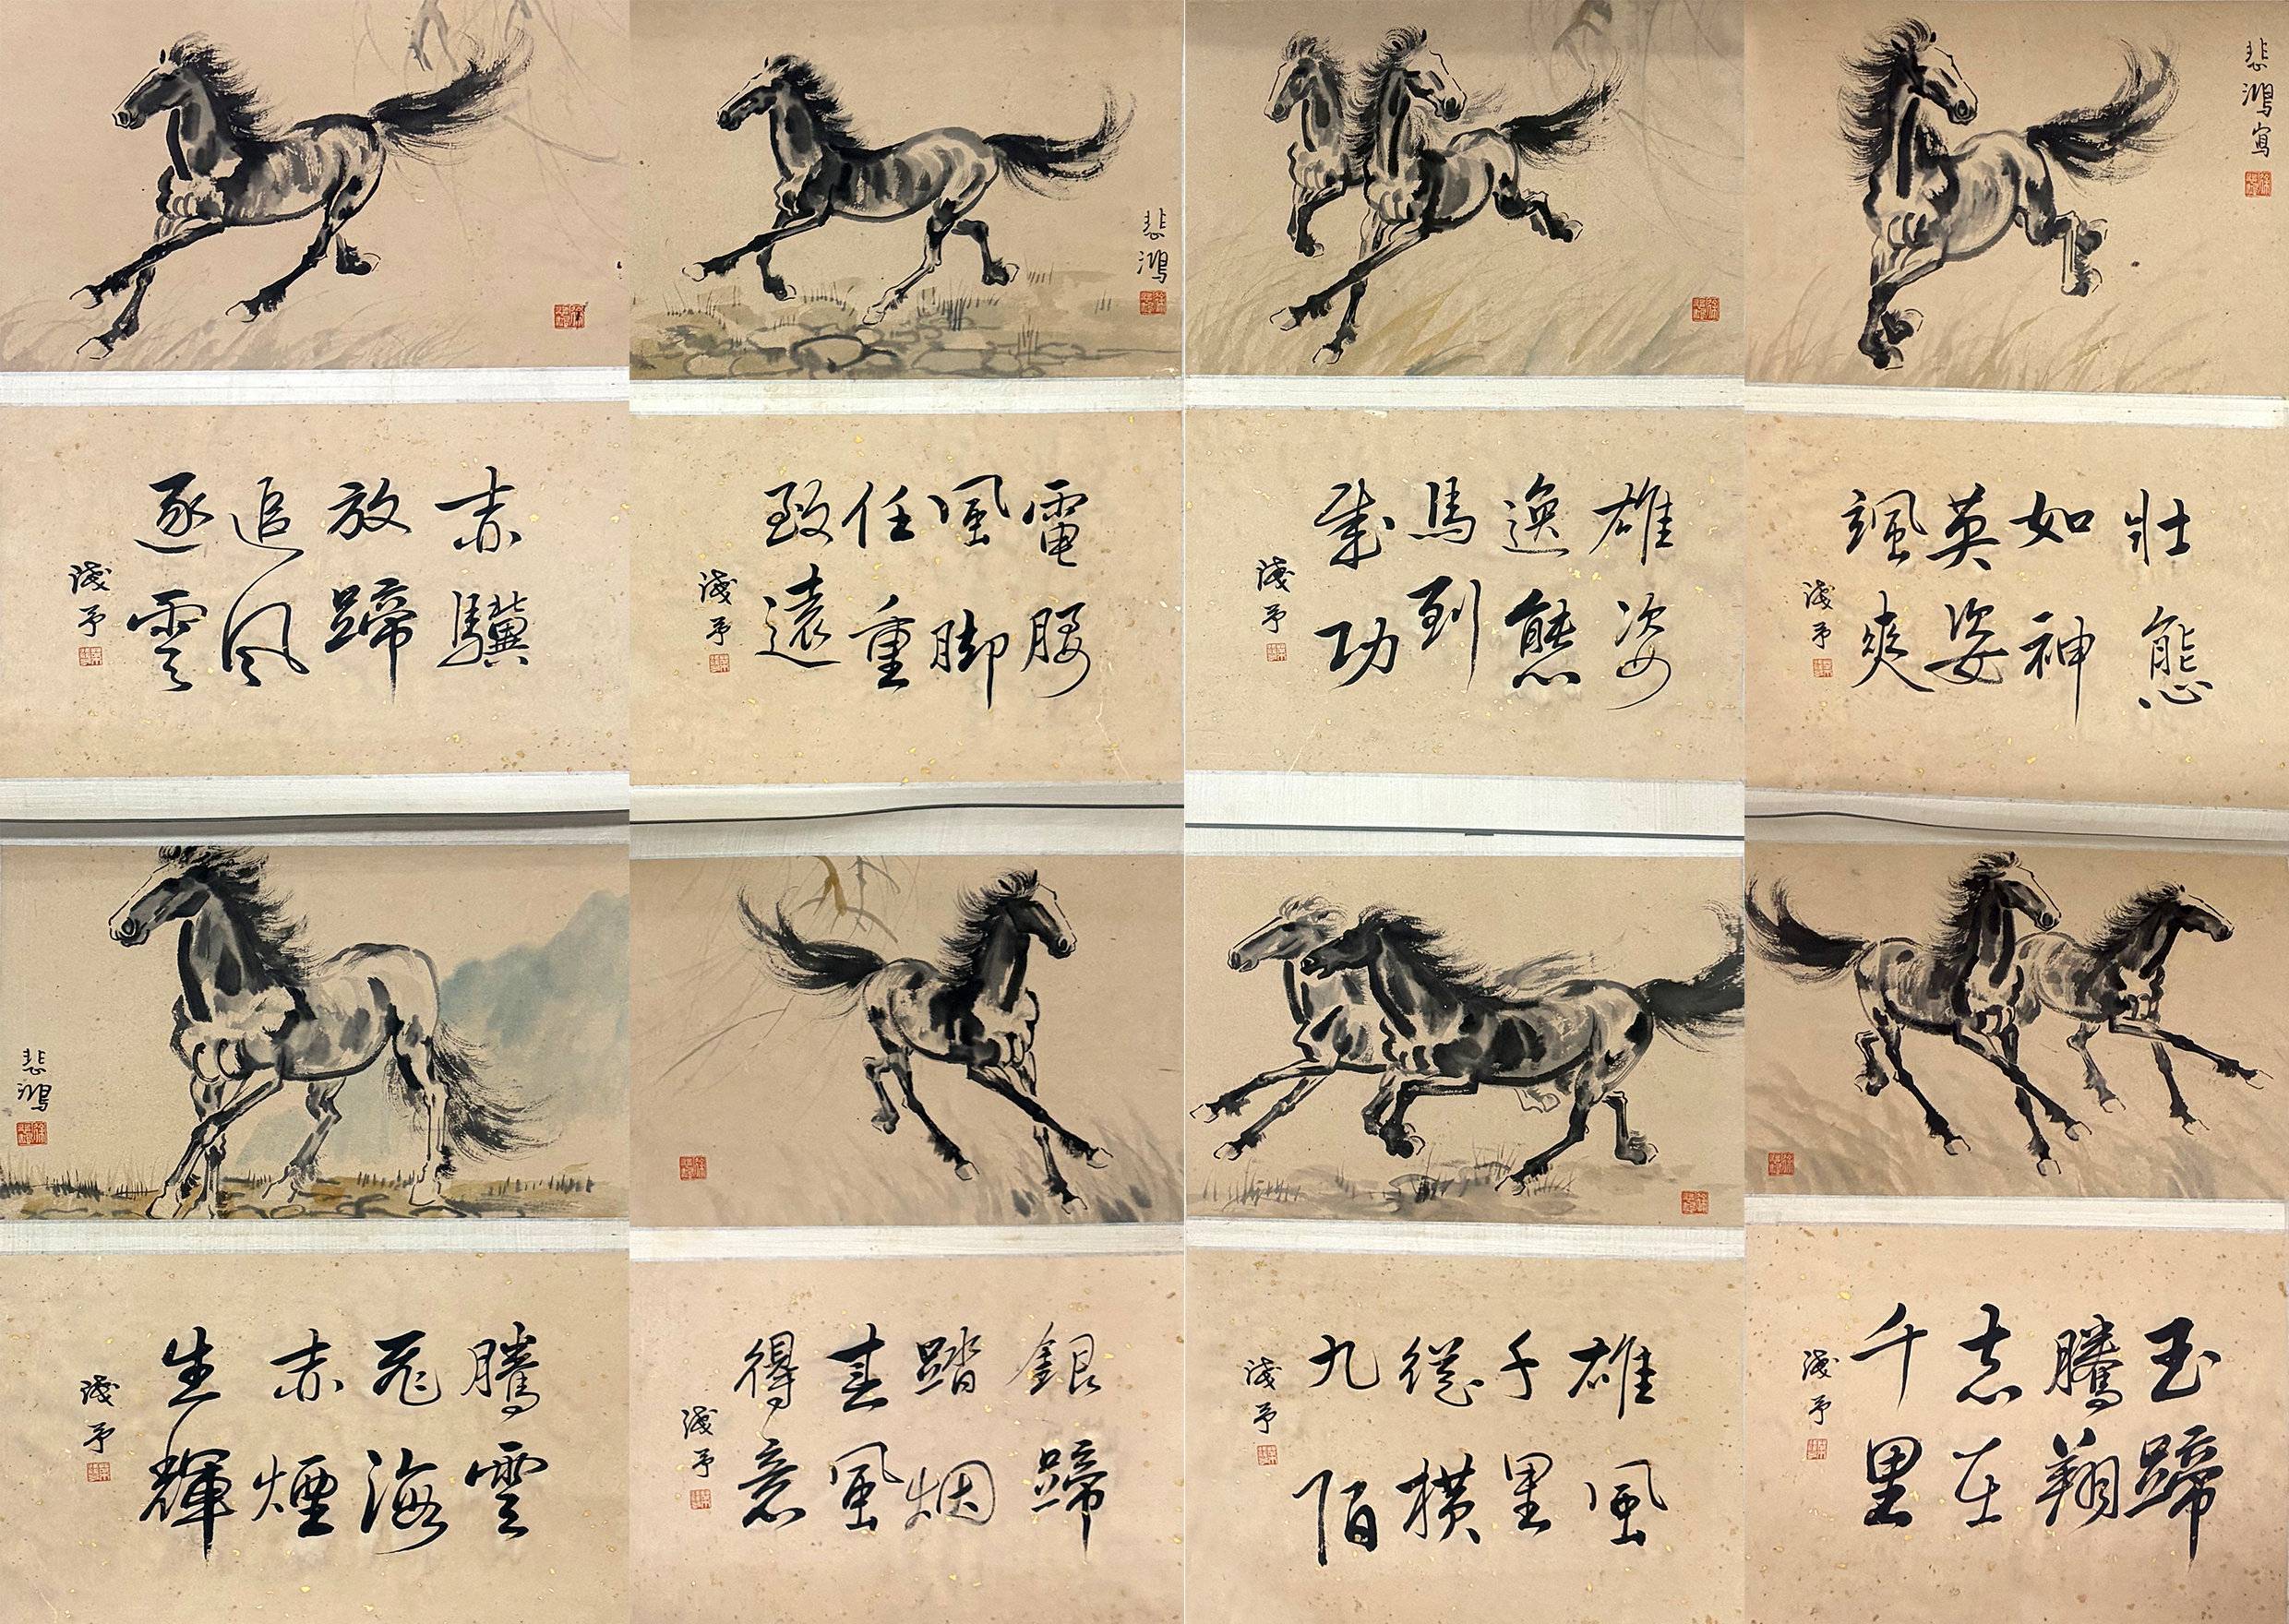 赤驥
放蹄
追風
逐雲
淺予
悲鴻
電腰
風脚
任重
致遠
淺予
雄姿
逸態
馬到
成功
淺予
悲鴻寫
壯態
如神
英姿
颯爽
淺予
悲鴻
騰雲
飛海
赤煙
生輝
淺予
銀蹄
踏烟
春風
得意
淺予
雄風
千里
縱橫
九陌
淺予
玉蹄
騰翔
志在
千里
淺予